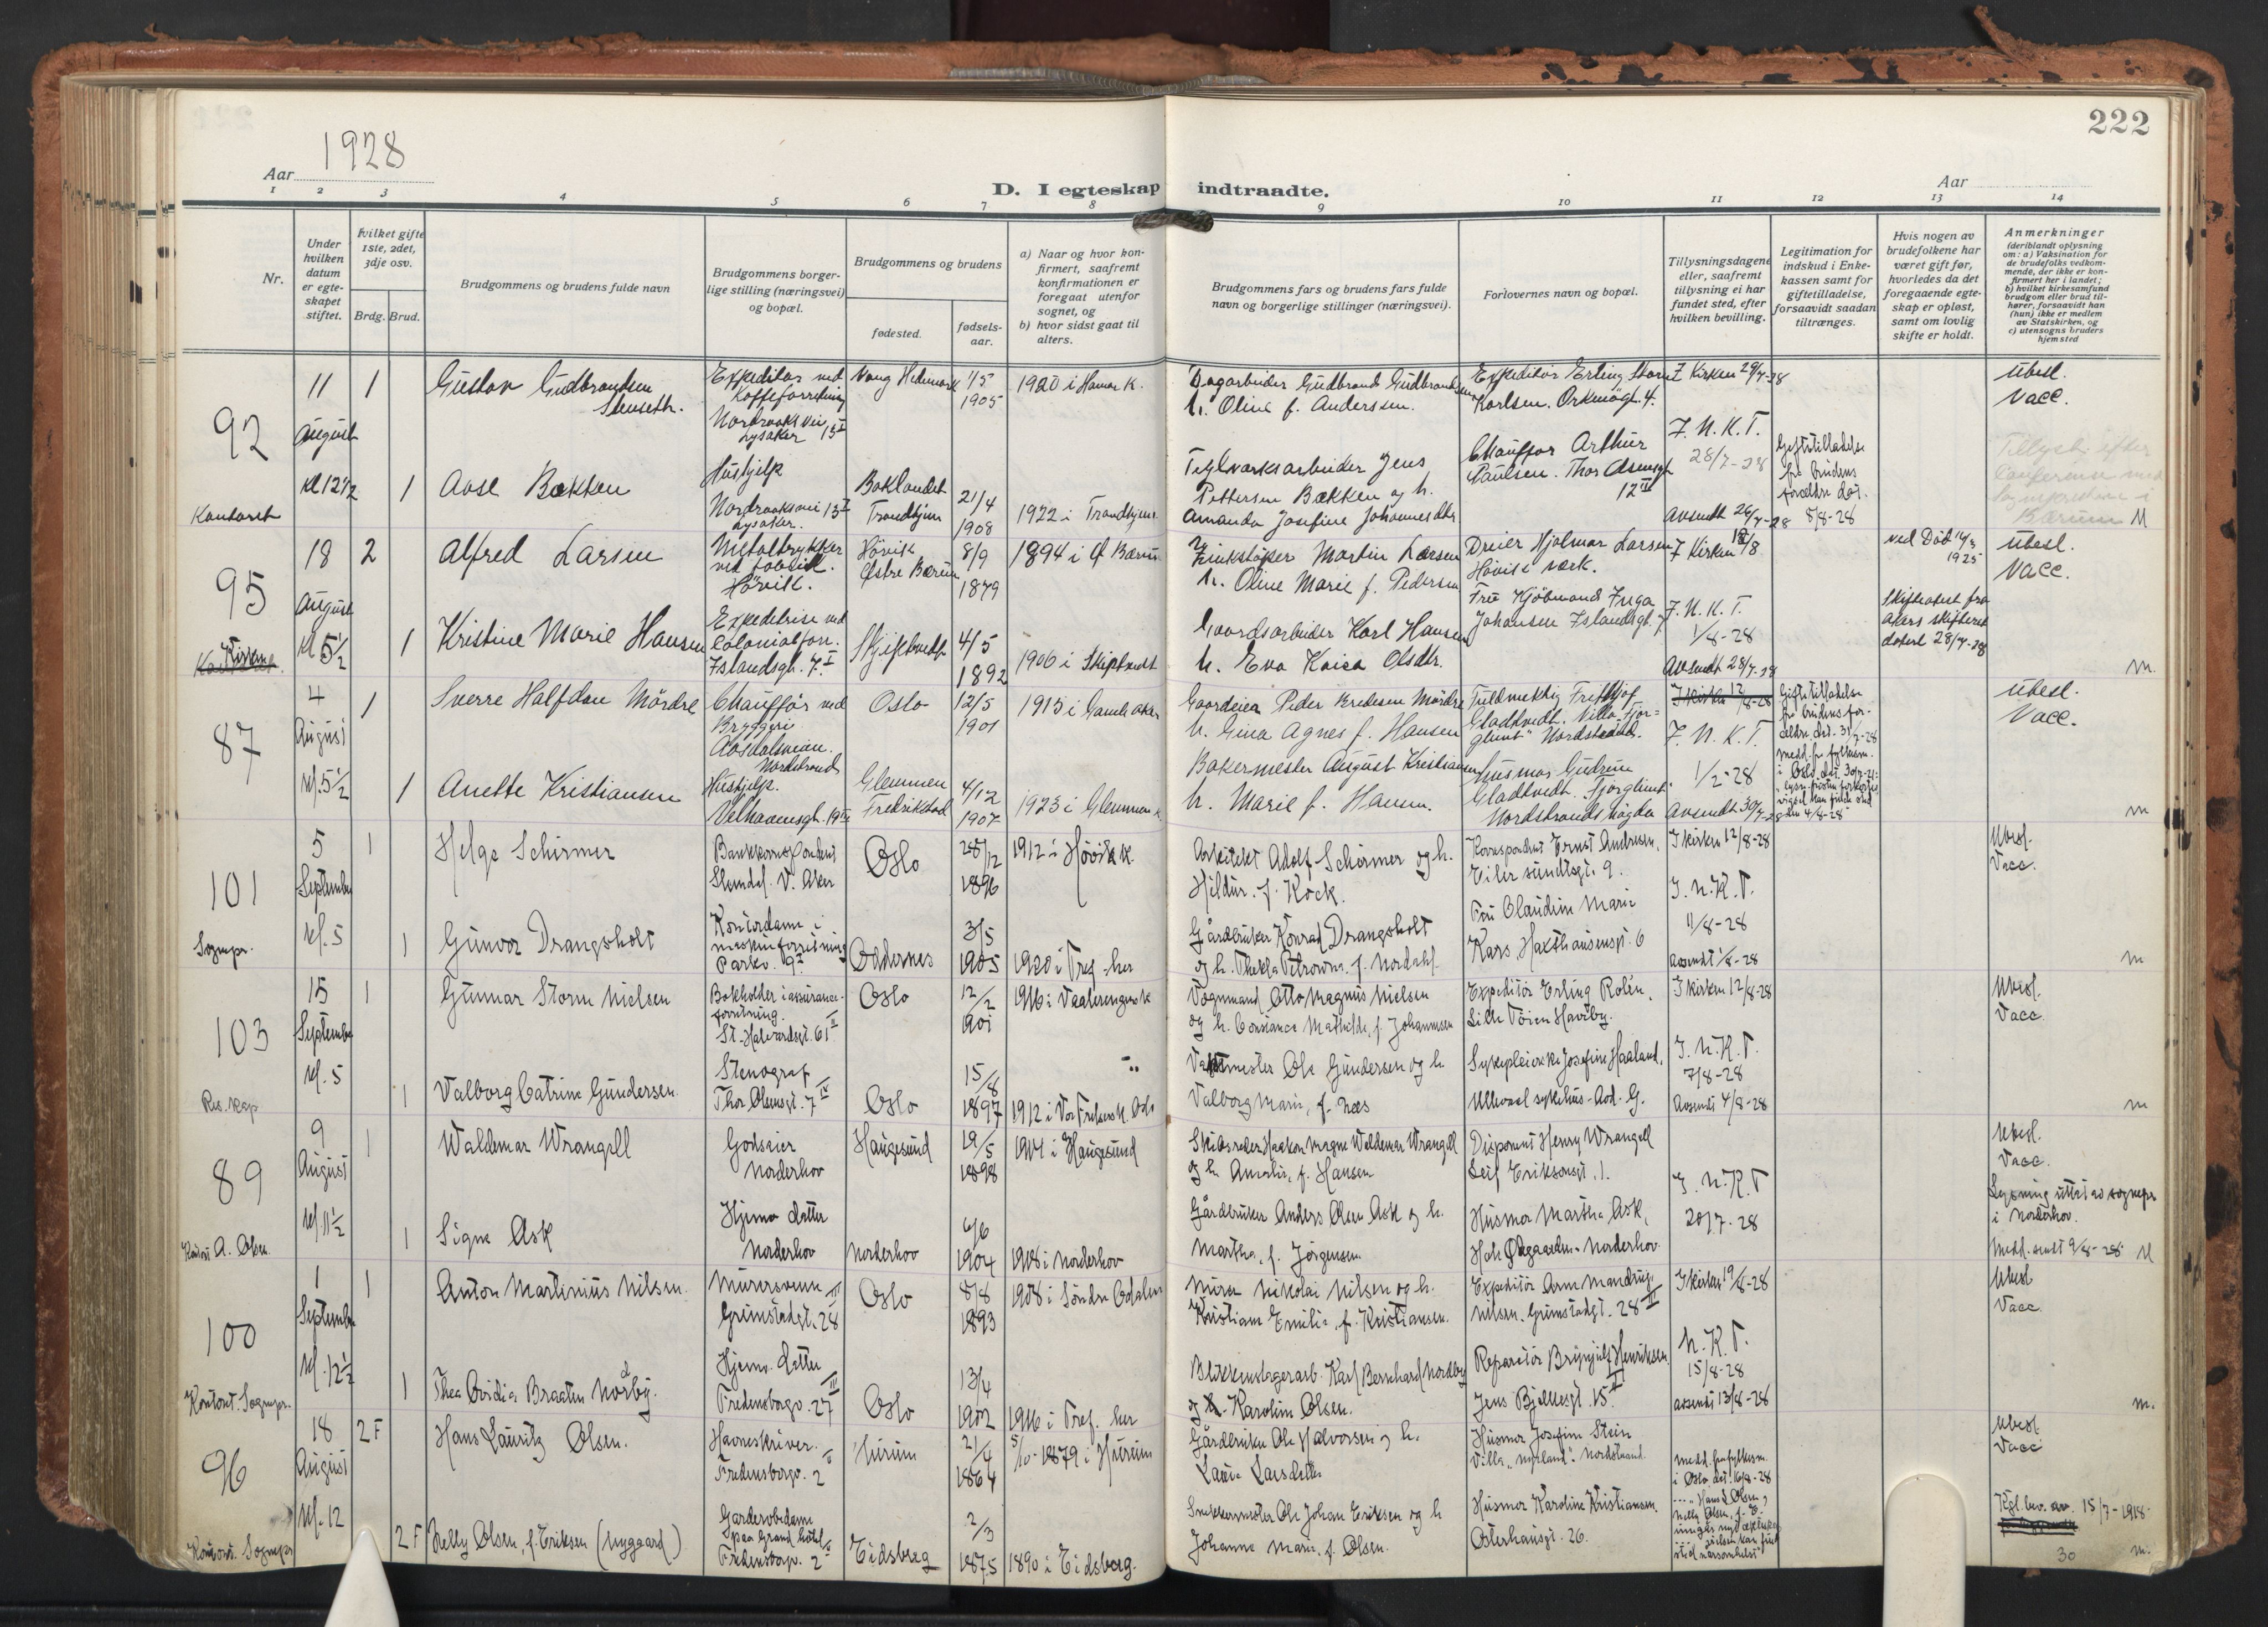 222
1928
Aar
Aar
D. I egteskap indtraadte.
1 2 3 4 5 6 7 8 9 10 11 12 13 14
Nr.
Under hvilken datum er egteskapet stiftet.
Hvilket gifte 1ste, 2det, 3dje osv.
Brdg. Brud.
Brudgommens og brudens fulde navn
Brudgommens borgerlige stilling (næringsvei) og bopæl.
Brudgommens og brudens
fødested.
fødselsaar.
a) Naar og hvor konfirmert, saafremt konfirmationen er foregaat utenfor sognet, og
b) hvor sidst gaat til alters.
Brudgommens fars og brudens fars fulde navn og borgerlige stillinger (næringsvei).
Forlovernes navn og bopæl.
Tillysningsdagene eller, saafremt tillysning ei har fundet sted, efter hvilken bevilling.
Legitimation for indskud i Enkekassen samt for giftetilladelse, forsaavidt saadan tiltrænges.
Hvis nogen av brudefolkene har været gift før, hvorledes da det foregaaende egteskap er opløst, samt om lovlig skifte er holdt.
Anmerkninger (deriblandt oplysning om: a) Vaksination for de brudefolks vedkommende, der ikke er konfirmert her i landet, b) hvilket kirkesamfund brudgom eller brud tilhører, forsaavidt han (hun) ikke er medlem av Statskirken, og c) utensogns bruders hjemsted
92
11 August kl 12 1/2
Kontoret
1
Gustav Gudbrandsen Stenseth.
Expeditør ved Kaffeforretning
Nordraaks vei 13 I Lysaker
Vang Hedemark
1/5 1905
1920 i Hamar K.
Dagarbeider Gudbrand Gudbrandsen
h. Oline f. Anderssen.
Expeditør Erling Storm Karlsen. Orknøgt. 4.
I Kirken 29/7-28
Ubesl.
Vacc.
1
Aase Bakken
Hushjelp
Nordraaksvei 13 I Lysaker.
Baklandet Trondhjem
21/4 1908
1922 i Trondhjem
Teglverksarbeider Jens Pettersen Bakken og h.
Amanda Josefine Johannesdtr
Chauffør Arthur Paulsen. Thor Olsensgt 12 III
I. N. K. T.
28/7-28
Avsendt 26/7-28
Giftetilladelse fra brudens forældre dat. 8/8-28
M
95
18 August kl 5 1/2
Kirken
2
Alfred Larsen
Metaltrykker ved fabrik. Høvik.
Høvik Østre Bærum
8/9 1879
1894 i Ø Bærum
Zinkstøper Martin Larsen
h. Oline Marie f. Pedersen
Dreier Hjalmar Larsen Høvik verk.
I Kirken 12/8
ved Død 14/3 1925
Ubesl.
Vacc.
1
Kristine Marie Hansen
Expeditrise ved Colonialforr.
Islandsgt. 7. I
Skiptvedt
4/5 1892
1906 i Skiptvedt
Gaardsarbeider Karl Hansen
h. Eva Kaisa Olsdtr.
Fru Kjøbmand Inga Johansen Islandsgt. 7
I. N. K. T.
1/8-28
Avsendt 28/7-28
Skifteatest fra Akers skifteret datert 28/7-28
m.
87
4 August kl. 5 1/2
1
Sverre Halfdan Mördre
Chauffør ved Bryggeri
Aasdalsveien. Nordstrand
Oslo
12/5 1901
1915 i Gamle Aker
Gaardeier Peder Kredesen Mördre
h. Gina Agnes f. Hansen
Fuldmektig Fritthjof Gladtvedt. Villa "Fjorglimt" Nordstrand.
I Kirken 12/8-28
I. N. K. T.
Ubesl.
Vacc.
1
Anette Kristiansen
Hushjelp.
Velhavensgt. 19 III
Glemmen Fredrikstad
4/12 1907
1923 i Glemmen K.
Bakermester August Kristiansen
h. Marie f. Hansen.
Husmor Gudrun Gladtvedt. Fjorglimt Nordstrandshøgda
1/2-28
Avsendt 30/7-28
m
101
5 September kl. 5
Sognepr.
1
Helge Schirmer
Bankkorrespondent
Slemdal. V. Aker
Oslo
28/12 1896
1912 i Høvik K.
Arkitekt Adolf Schirmer og h.
Hildur. f. Kock.
Korrespondent Ernst Andresen.
Eilert Sundtsgt. 9.
I kirken 12/8-28
Ubesl.
Vacc.
1
Gunvor Drangsholt
Kontordame i maskinforretning
Parkv. 9 I
Oddernes
3/5 1905
1920 i Tref. her
Gårdbruker Konrad Drangsholt
og h. Thekla Petrowna. f. Nordahl.
Fru Claudine Marie Kars, Haxthausensgt. 6
I. N. K. T.
11/8-28
avsendt 1/8-28
m
103
15 September kl. 5
Res. kap
1
Gunnar Storm Nielsen
Bokholder i assuranceforretning.
St. Halvardsgt. 61 II
Oslo
12/2 1901
1916 i Vaalerengens k
Vognmand Otto Magnus Nielsen
og h. Constance Mathilde, f. Johannesen
Expeditør Erling Rolén,
Lille Tøien Havtby.
I kirken 12/8-28
Ubesl.
Vacc.
1
Valborg Catrine Gundersen
Stenograf
Thor Olsensgt. 7 IV
Oslo
15/8 1897
1912 i Vor Frelsers k. Oslo
Vaktmester Ole Gundersen og h.
Valborg Marie, f. Næs
Sykepleierske Josefine Haaland,
Ullevaal sykehus - Avd. G.
I. N. K. T.
7/8-28
Avsendt 4/8-28
m
89
9 August kl. 11 1/2
Kontoret A. Olsen.
1
Waldemar Wrangell
Godseier
Norderhov
Haugesund
19/5 1898
1914 i Haugesund
Skibsreder Haakon Magne Waldemar Wrangell
og h. Amalie, f. Hansen
Disponent Henry Wrangell
Leif Eriksonsgt. 1.
I. N. K. T
Ubesl.
Vacc.
Lysning utført av sognepr. i Norderhov.
1
Signe Ask
Hjemv. datter
Norderhov
Norderhov
6/6 1904
1918 i Norderhov
Gårdbruker Anders Olsen Ask og h.
Martha, f. Jörgensen
Husmor Martha Ask,
Norderhov
20/7-28
Medd. sendt 9/8-28
M
100
1 September kl. 12 1/2
Kontoret. Sognepr.
1
Anton Martinius Nilsen.
Murersvenn
Grimstadgt. 28 III
Oslo
8/8 1893
1908 i Søndre Odalen
Murer Nikolai Nilsen og h.
Kristiane Emilie, f. Kristiansen.
Expeditør Arne Mandrup Nilsen. Grimstadgt. 28 III
I kirken 19/8-28
Ubesl
Vacc.
1
Thea Ovidia Braaten Nordby.
Hjemv. datter
Fredensborgv. 27 III
Oslo
13/4 1902
1916 i Tref. her
Blikkenslagerarb. Karl Bernhard Nordby
og h. Karoline Olsen.
Reparatør Brynjulf Henriksen,
Jens Bjelkesgt. 15 II
N. K. T.
15/8-28
avsendt 13/8-28
m.
96
18 August kl. 12
Kontoret. Sognepr
2 F
Hans Lauritz Olsen.
Havneskriver.
Fredensborgv. 2 II
Hurum
21/4 1864
5/10-1879 i Hurum
Gårdbruker Ole Halvorsen og h.
Lavise Larsdatter
Husmor Josefine Stein
Villa "Myrland". Nordstrand.
Ubesl
Vacc
2 F
Nelly Olsen, f. Eriksen (Nygaard)
Garderobedame paa Grand hotel
Fredensborgv. 2 II
Eidsberg
2/3 1875
1890 i Eidsberg.
Snekkermester Ole Johan Eriksen og h
Johanne Marie, f. Olsen.
Husmor Karoline Kristiansen.
Osterhausgt. 26.
Kgl. bev. av 15/7-1918
30
m.